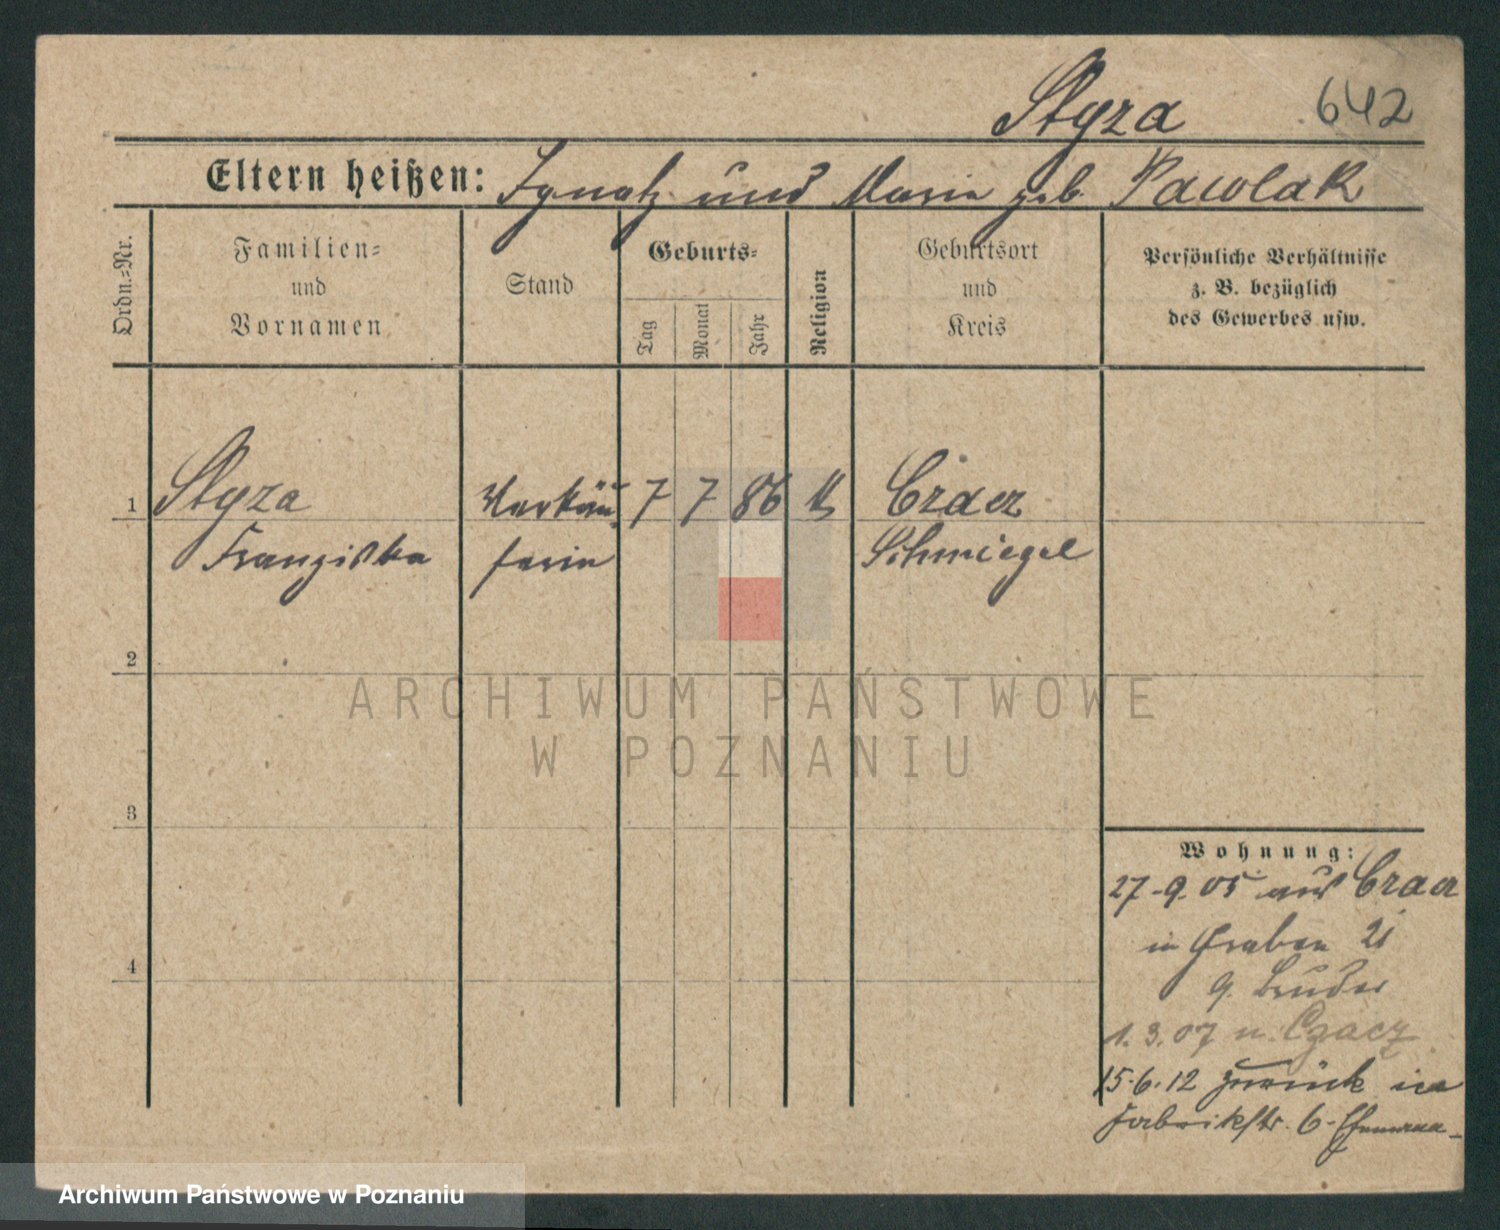 Styza 642
Eltern heißen: Ignatz und Marie geb. Pawlak
Ordn.-Nr.
Familien-
und
Vornamen
Stand
Geburts-
Tag
Monat
Jahr
Religion
Geburtsort
und
Kreis
Persönliche Verhältnisse
z. B. bezüglich
des Gewerbes usw.
1 Styza Verkäu- 7 7 86 k Czacz
Franziska ferin Schmiegel
2
ARCHIWUM PAŃSTWOWE
W POZNANIU
3
Wohnung:
27.9.05 aus Czacz
4
in Graben 21
b. Bruder
1.3.07 n. Czacz
15.6.12 zurück in
Fabrikstr. 6
Archiwum Państwowe w Poznaniu